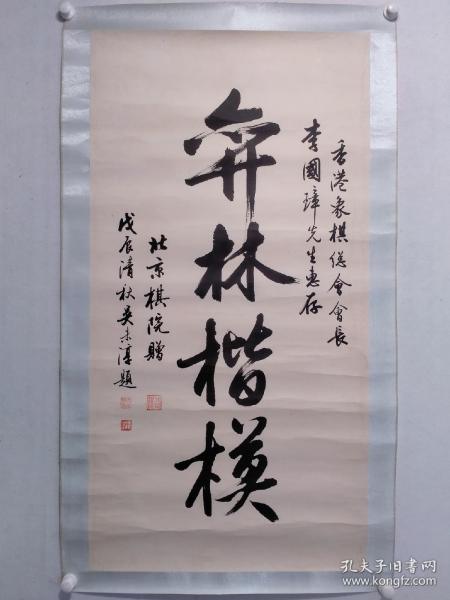 香港象棋總會會長
李國璋先生惠存
弈林楷模
北京棋院贈
戊辰清秋吴未淳題
孔夫子旧书网
www.kongfz.com